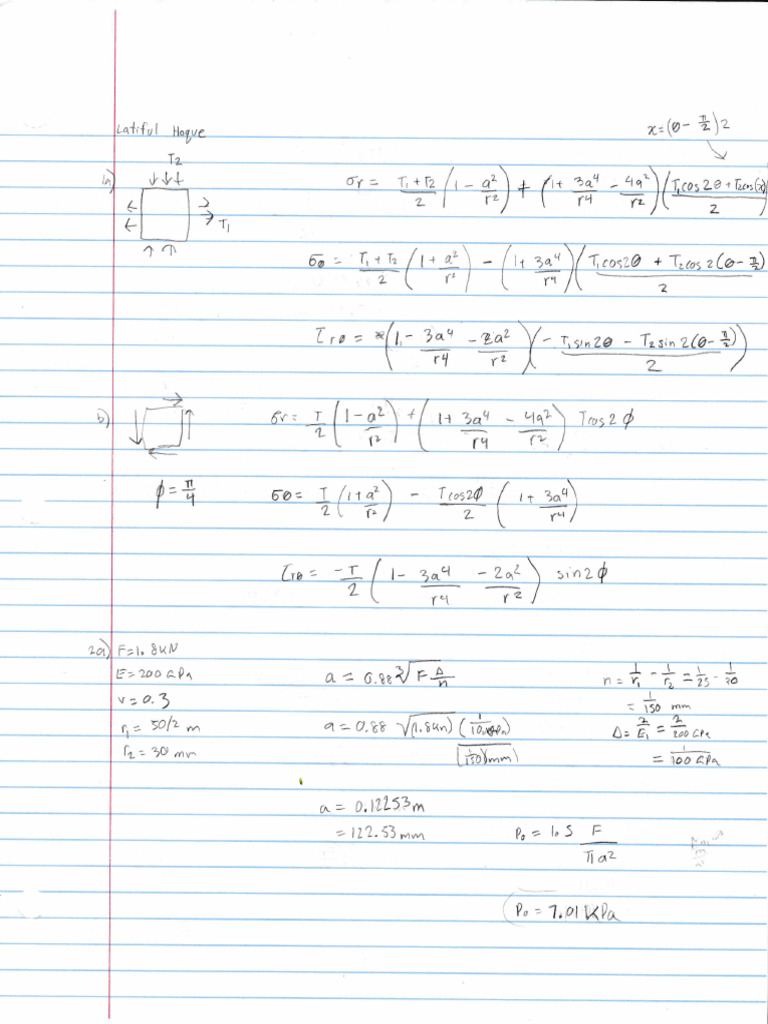 Latiful Hoque
x=(θ- π/2)2
1a)
T2
T1
σr = T1+T2/2 (1 - a²/r²) + (1+ 3a⁴/r4 - 4a²/r²)(T1cos2θ + T2cos(x)/2
σθ = T1+T2/2 (1 + a²/r²) - (1+ 3a⁴/r4)(T1cos2θ + T2cos2(θ-π/2)/2
τrθ = (1 - 3a4/r4 - 2a²/r²)(- T1sin2θ - T2sin2(θ-π/2)/2)
b)
σr = T/2 (1-a²/r²) + (1+ 3a4/r4 - 4a²/r²) Tcos2ϕ
ϕ = π/4
σθ = T/2 (1+a²/r²) - Tcos2ϕ/2 (1+ 3a4/r4)
τrθ = -T/2 (1- 3a4/r4 - 2a²/r²) sin2ϕ
2a) F=1.8kN
E=200GPa
v=0.3
r1 = 50/2 m
r2 = 30 mm
a = 0.88 ³√F Δ/n
n = 1/r1 - 1/r2 = 1/25 - 1/30
= 1/150 mm
a = 0.88 √(1.8kN) / (1/150)(mm)
Δ = 2/E1 = 2/200GPa
= 1/100GPa
a = 0.12253m
= 122.53mm
P0 = 1.5 F/πa²
P0 = 7.01KPa